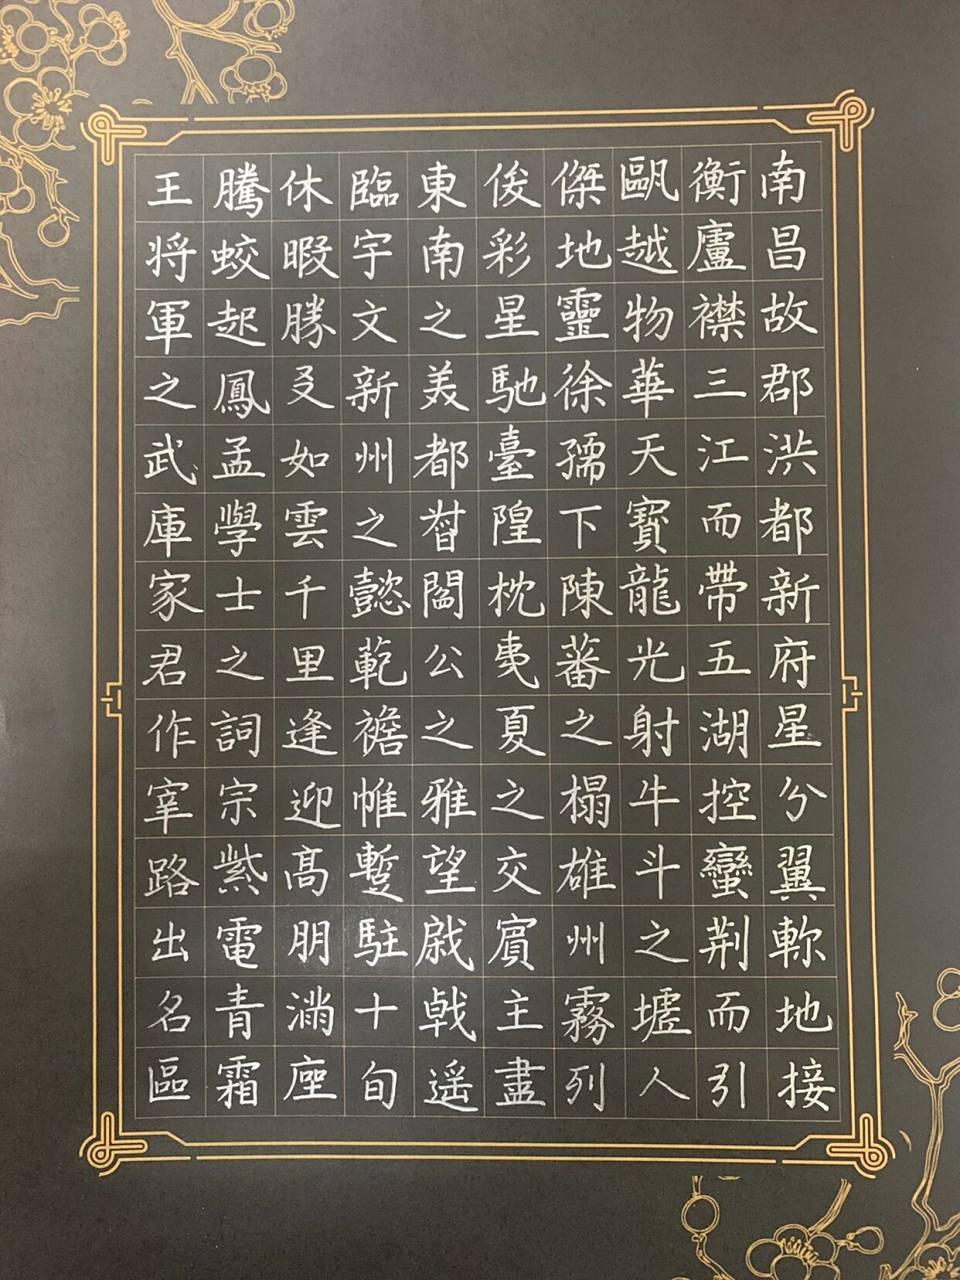 南昌故郡洪都新府星分翼軫地接
衡廬襟三江而帶五湖控蠻荆而引
甌越物華天寶龍光射牛斗之墟人
傑地靈徐孺下陳蕃之榻雄州霧列
俊彩星馳臺隍枕夷夏之交賓主盡
東南之美都督閻公之雅望戟遥
臨宇文新州之懿範襜帷暫駐十旬
休暇勝友如雲千里逢迎高朋滿座
騰蛟起鳳孟學士之詞宗紫電青霜
王将軍之武庫家君作宰路出名區